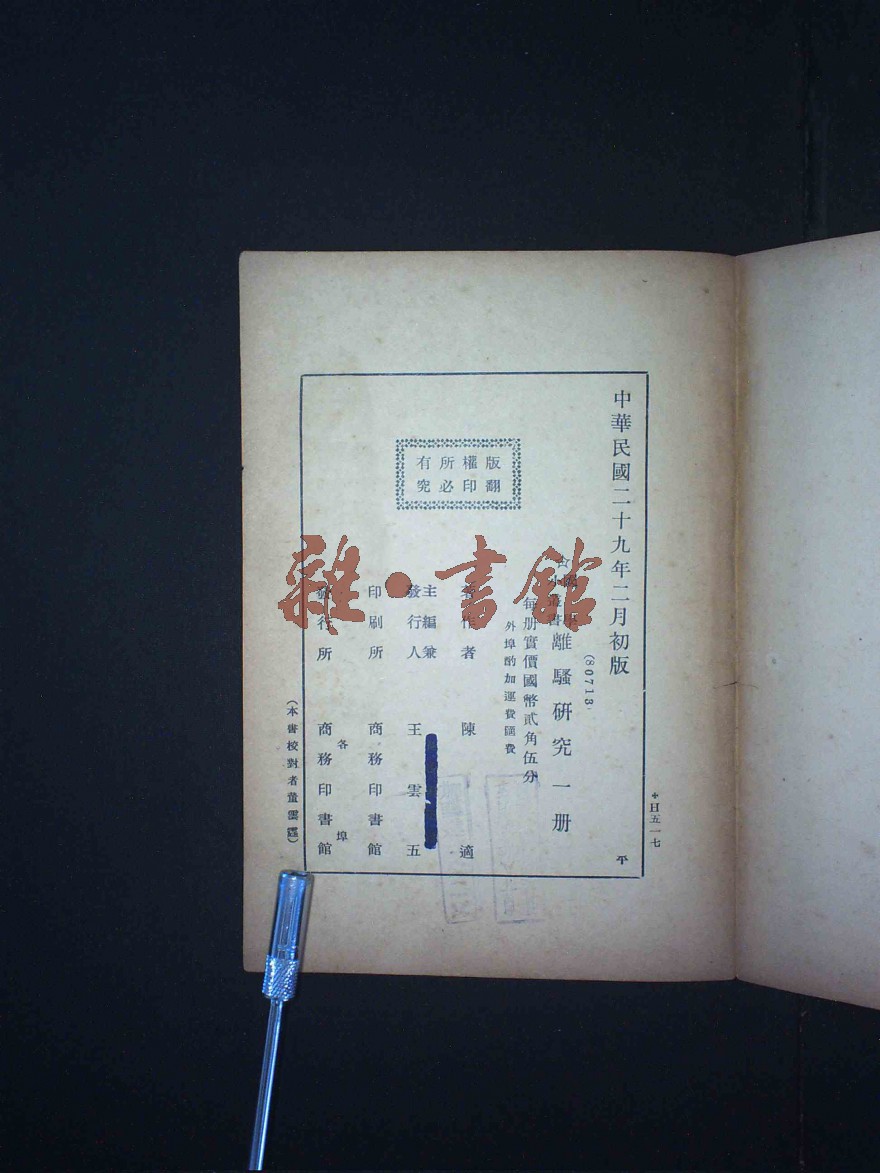 中華民國二十九年二月初版
(80713·
小叢書離騷研究一册
每册實價國幣貳角伍分
外埠酌加運費匯費
版權所有
翻印必究
著作者 陳適
主編兼
發行人 王雲五
印刷所 商務印書館
發行所 各埠 商務印書館
(本書校對者董
五一七
平
雜·書館